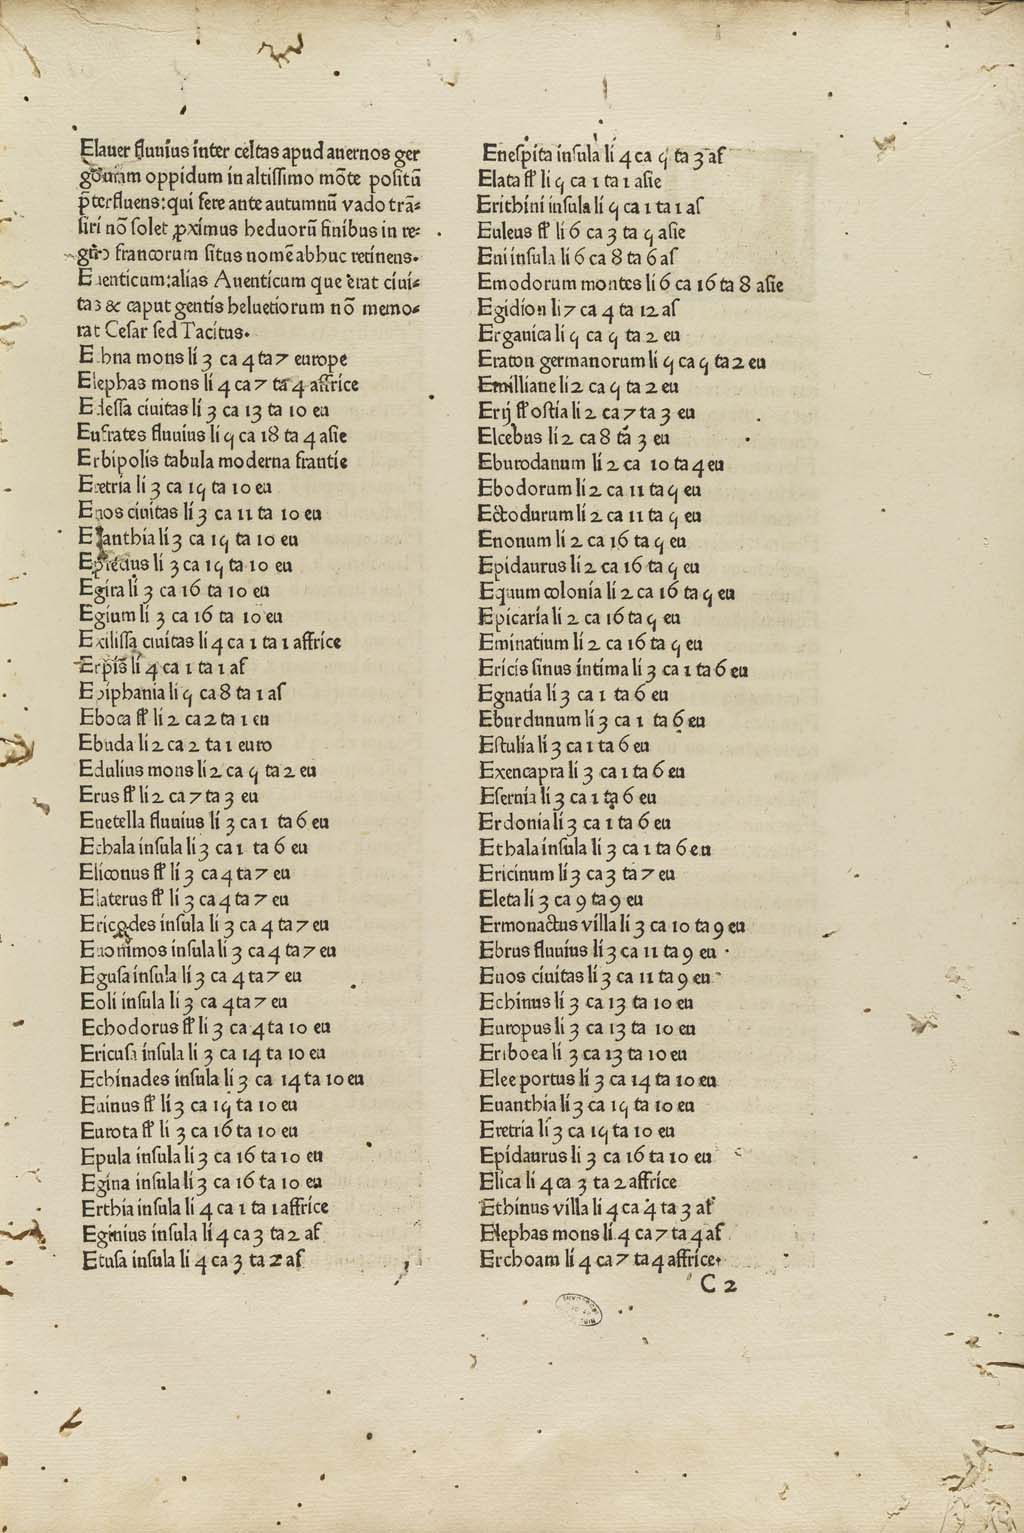 Elauer fluuius inter celtas apud auernos ger
gouiam oppidum in altissimo mõte positũ
p̃terfluens: qui fere ante autumnũ vado trã⸗
siri nõ solet ꝓximus heduorũ finibus in re⸗
gno francorum situs nomẽ abhuc retinens.
Euenticum: alias Auenticum que erat ciui⸗
tas & caput gentis heluetiorum nõ memo⸗
rat Cesar sed Tacitus.
Ethna mons li 3 ca 4 ta 7 europe
Elephas mons li 4 ca 7 ta 4 affrice
Edessa ciuitas li 3 ca 13 ta 10 eu
Eufrates fluuius li 5 ca 18 ta 4 asie
Erbipolis tabula moderna frantie
Eretria li 3 ca 15 ta 10 eu
Enos ciuitas li 3 ca 11 ta 10 eu
Euanthia li 3 ca 15 ta 10 eu
li 3 ca 15 ta 10 eu
Egira li 3 ca 16 ta 10 eu
Egium li 3 ca 16 ta 10 eu
Exilissa ciuitas li 4 ca 1 ta 1 affrice
Erpis li 4 ca 1 ta 1 af
Epiphania li 5 ca 8 ta 1 as
Eboca fl̃ li 2 ca 2 ta 1 eu
Ebuda li 2 ca 2 ta 1 euro
Edulius mons li 2 ca 5 ta 2 eu
Erus fl̃ li 2 ca 7 ta 3 eu
Enetella fluuius li 3 ca 1 ta 6 eu
Ethala insula li 3 ca 1 ta 6 eu
Eliconus fl̃ li 3 ca 4 ta 7 eu
Elaterus fl̃ li 3 ca 4 ta 7 eu
Ericodes insula li 3 ca 4 ta 7 eu
Euonimos insula li 3 ca 4 ta 7 eu
Egusa insula li 3 ca 4 ta 7 eu
Eoli insula li 3 ca 4 ta 7 eu
Echodorus fl̃ li 3 ca 4 ta 10 eu
Ericusa insula li 3 ca 14 ta 10 eu
Echinades insula li 3 ca 14 ta 10 eu
Euinus fl̃ li 3 ca 15 ta 10 eu
Eurota fl̃ li 3 ca 16 ta 10 eu
Epula insula li 3 ca 16 ta 10 eu
Egina insula li 3 ca 16 ta 10 eu
Erthia insula li 4 ca 1 ta 1 affrice
Eginius insula li 4 ca 3 ta 2 af
Etusa insula li 4 ca 3 ta 2 af
Enespita insula li 4 ca 5 ta 3 af
Elata fl̃ li 5 ca 1 ta 1 asie
Erithini insula li 5 ca 1 ta 1 as
Euleus fl̃ li 6 ca 3 ta 5 asie
Eni insula li 6 ca 8 ta 6 as
Emodorum montes li 6 ca 16 ta 8 asie
Egidion li 7 ca 4 ta 12 as
Ergauica li 5 ca 5 ta 2 eu
Eraton germanorum li 5 ca 5 ta 2 eu
Emilliane li 2 ca 5 ta 2 eu
Erij fl̃ ostia li 2 ca 7 ta 3 eu
Elcebus li 2 ca 8 ta 3 eu
Eburodanum li 2 ca 10 ta 4 eu
Ebodorum li 2 ca 11 ta 5 eu
Ectodurum li 2 ca 11 ta 5 eu
Enonum li 2 ca 16 ta 5 eu
Epidaurus li 2 ca 16 ta 5 eu
Equum colonia li 2 ca 16 ta 5 eu
Epicaria li 2 ca 16 ta 5 eu
Eminatium li 2 ca 16 ta 5 eu
Ericis sinus intima li 3 ca 1 ta 6 eu
Egnatia li 3 ca 1 ta 6 eu
Eburdunum li 3 ca 1 ta 6 eu
Estulia li 3 ca 1 ta 6 eu
Exencapra li 3 ca 1 ta 6 eu
Esernia li 3 ca 1 ta 6 eu
Erdonia li 3 ca 1 ta 6 eu
Ethala insula li 3 ca 1 ta 6 eu
Ericinum li 3 ca 3 ta 7 eu
Eleta li 3 ca 9 ta 9 eu
Ermonactus villa li 3 ca 10 ta 9 eu
Ebrus fluuius li 3 ca 11 ta 9 eu
Enos ciuitas li 3 ca 11 ta 9 eu
Echinus li 3 ca 13 ta 10 eu
Europus li 3 ca 13 ta 10 eu
Eriboea li 3 ca 13 ta 10 eu
Elee portus li 3 ca 14 ta 10 eu
Euanthia li 3 ca 15 ta 10 eu
Eretria li 3 ca 15 ta 10 eu
Epidaurus li 3 ca 16 ta 10 eu
Elica li 4 ca 3 ta 2 affrice
Ethinus villa li 4 ca 4 ta 3 af
Elephas mons li 4 ca 7 ta 4 af
Erchoam li 4 ca 7 ta 4 affrice.
C 2